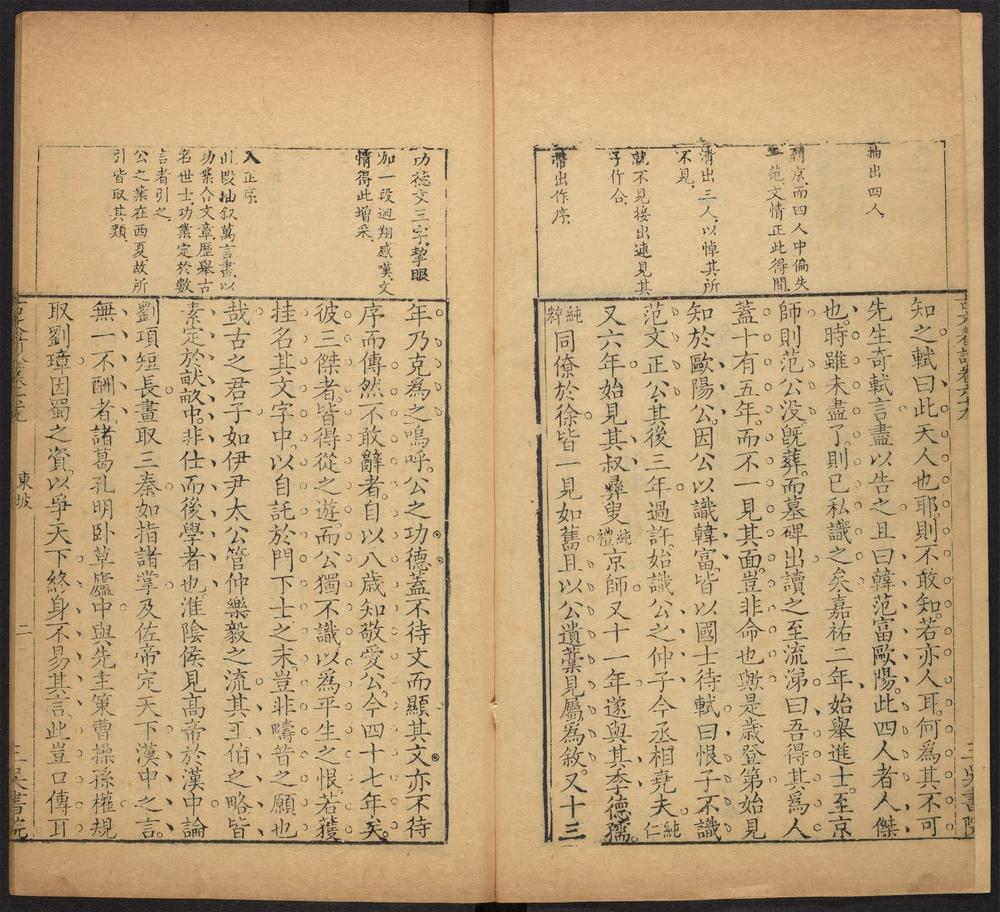 抽出四人
到京而四人中偏失
一范文情正此得間
清出三人以悼其所
不見
就不見接出連見其
子作合
帶出作序
知之軾曰此天人也耶則不敢知若亦人耳何為其不可
先生奇軾言盡以告之且曰韓范富歐陽此四人者人傑
也時雖未盡了則已私識之矣嘉祐二年始舉進士至京
師則范公沒旣葬而墓碑出讀之至流涕曰吾得其為人
蓋十有五年而不一見其面豈非命也歟是歲登第始見
知於歐陽公因公以識韓富皆以國士待軾曰恨子不識
范文正公其後三年過許始識公之仲子今丞相堯夫純仁
又六年始見其叔彝叟純禮京師又十一年遂與其季德孺
純粹同僚於徐皆一見如舊且以公遺藁見屬為敘又十三
功德文三字挈眼
加一段迴翔感嘆文
情得此增采
入正序
此段抽叙萬言書以
功業合文章歷舉古
名世士功業定於數
言者引之
公之業在西夏故所
引皆取其類
年乃克為之嗚呼公之功德蓋不待文而顯其文亦不待
序而傳然不敢辭者自以八歲知敬愛公今四十七年矣
彼三傑者皆得從之遊而公獨不識以為平生之恨若獲
挂名其文字中以自託於門下士之末豈非疇昔之願也
哉古之君子如伊尹太公管仲樂毅之流其王伯之略皆
素定於畎畝中非仕而後學者也淮陰侯見高帝於漢中論
劉項短長畫取三秦如指諸掌及佐帝定天下漢中之言
無一不酬者諸葛孔明卧草廬中與先主策曹操孫權規
取劉璋因蜀之資以爭天下終身不易其言此豈口傳耳
東坡
二